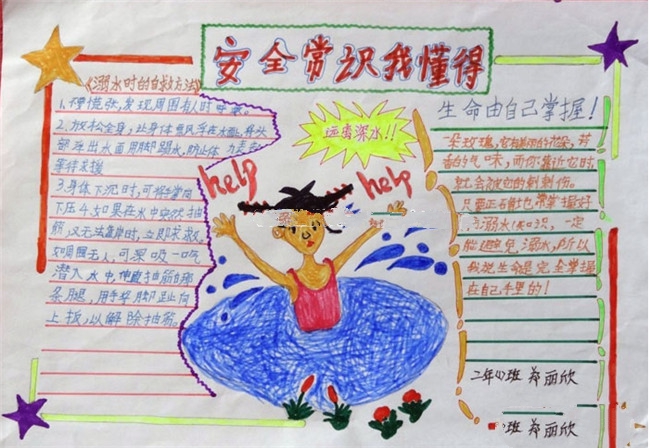 安全常识我懂得
《溺水时的自救方法》
1、别慌张,发现周围有人时呼救。
2、放松全身,让身体飘浮在水面,将头
部浮出水面用脚踢水,防止体力丧失
等待救援
3、身体下沉时,可将手掌向
下压 4、如果在水中突然抽
筋,又无法靠岸时,立即求救。
如周围无人,可深吸一口气
潜入水中,伸直抽筋的那
条腿,用手将脚趾向
上扳,以解除抽筋。
help
远离深水!!
help
生命由自己掌握!
一朵玫瑰,它有美丽的花朵,芳
香的气味,而你靠近它时
就会被它的刺刺伤。
只要正确地掌握好
防溺水知识,一定
能避免溺水,所以
我说生命是完全掌握
在自己手里的!
二年(1)班 郑丽欣
班 郑丽欣